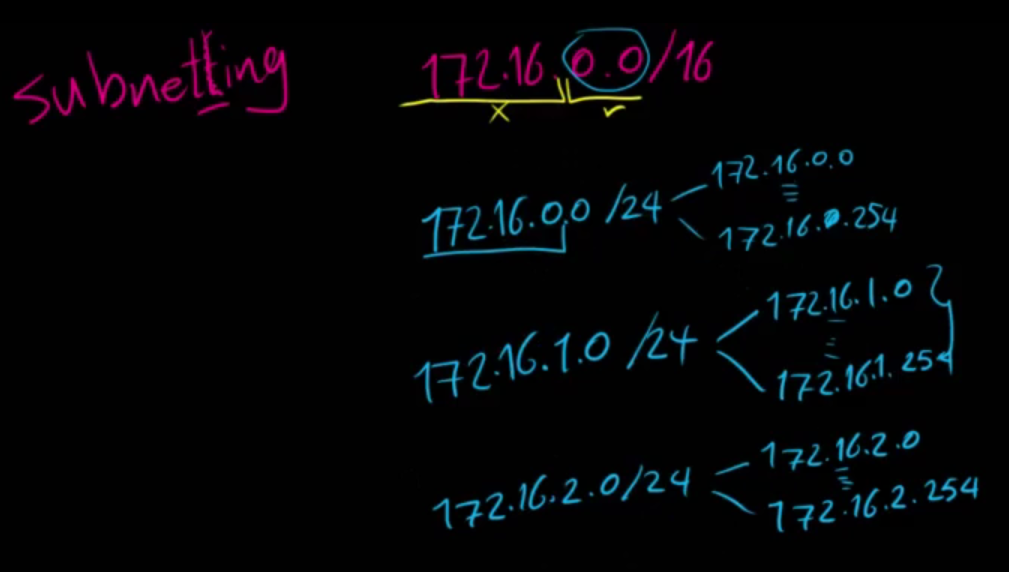 subnetting
172.16.0.0/16
x ✓
172.16.0.0 /24
172.16.0.0
172.16.0.254
172.16.1.0 /24
172.16.1.0
172.16.1.254
172.16.2.0/24
172.16.2.0
172.16.2.254